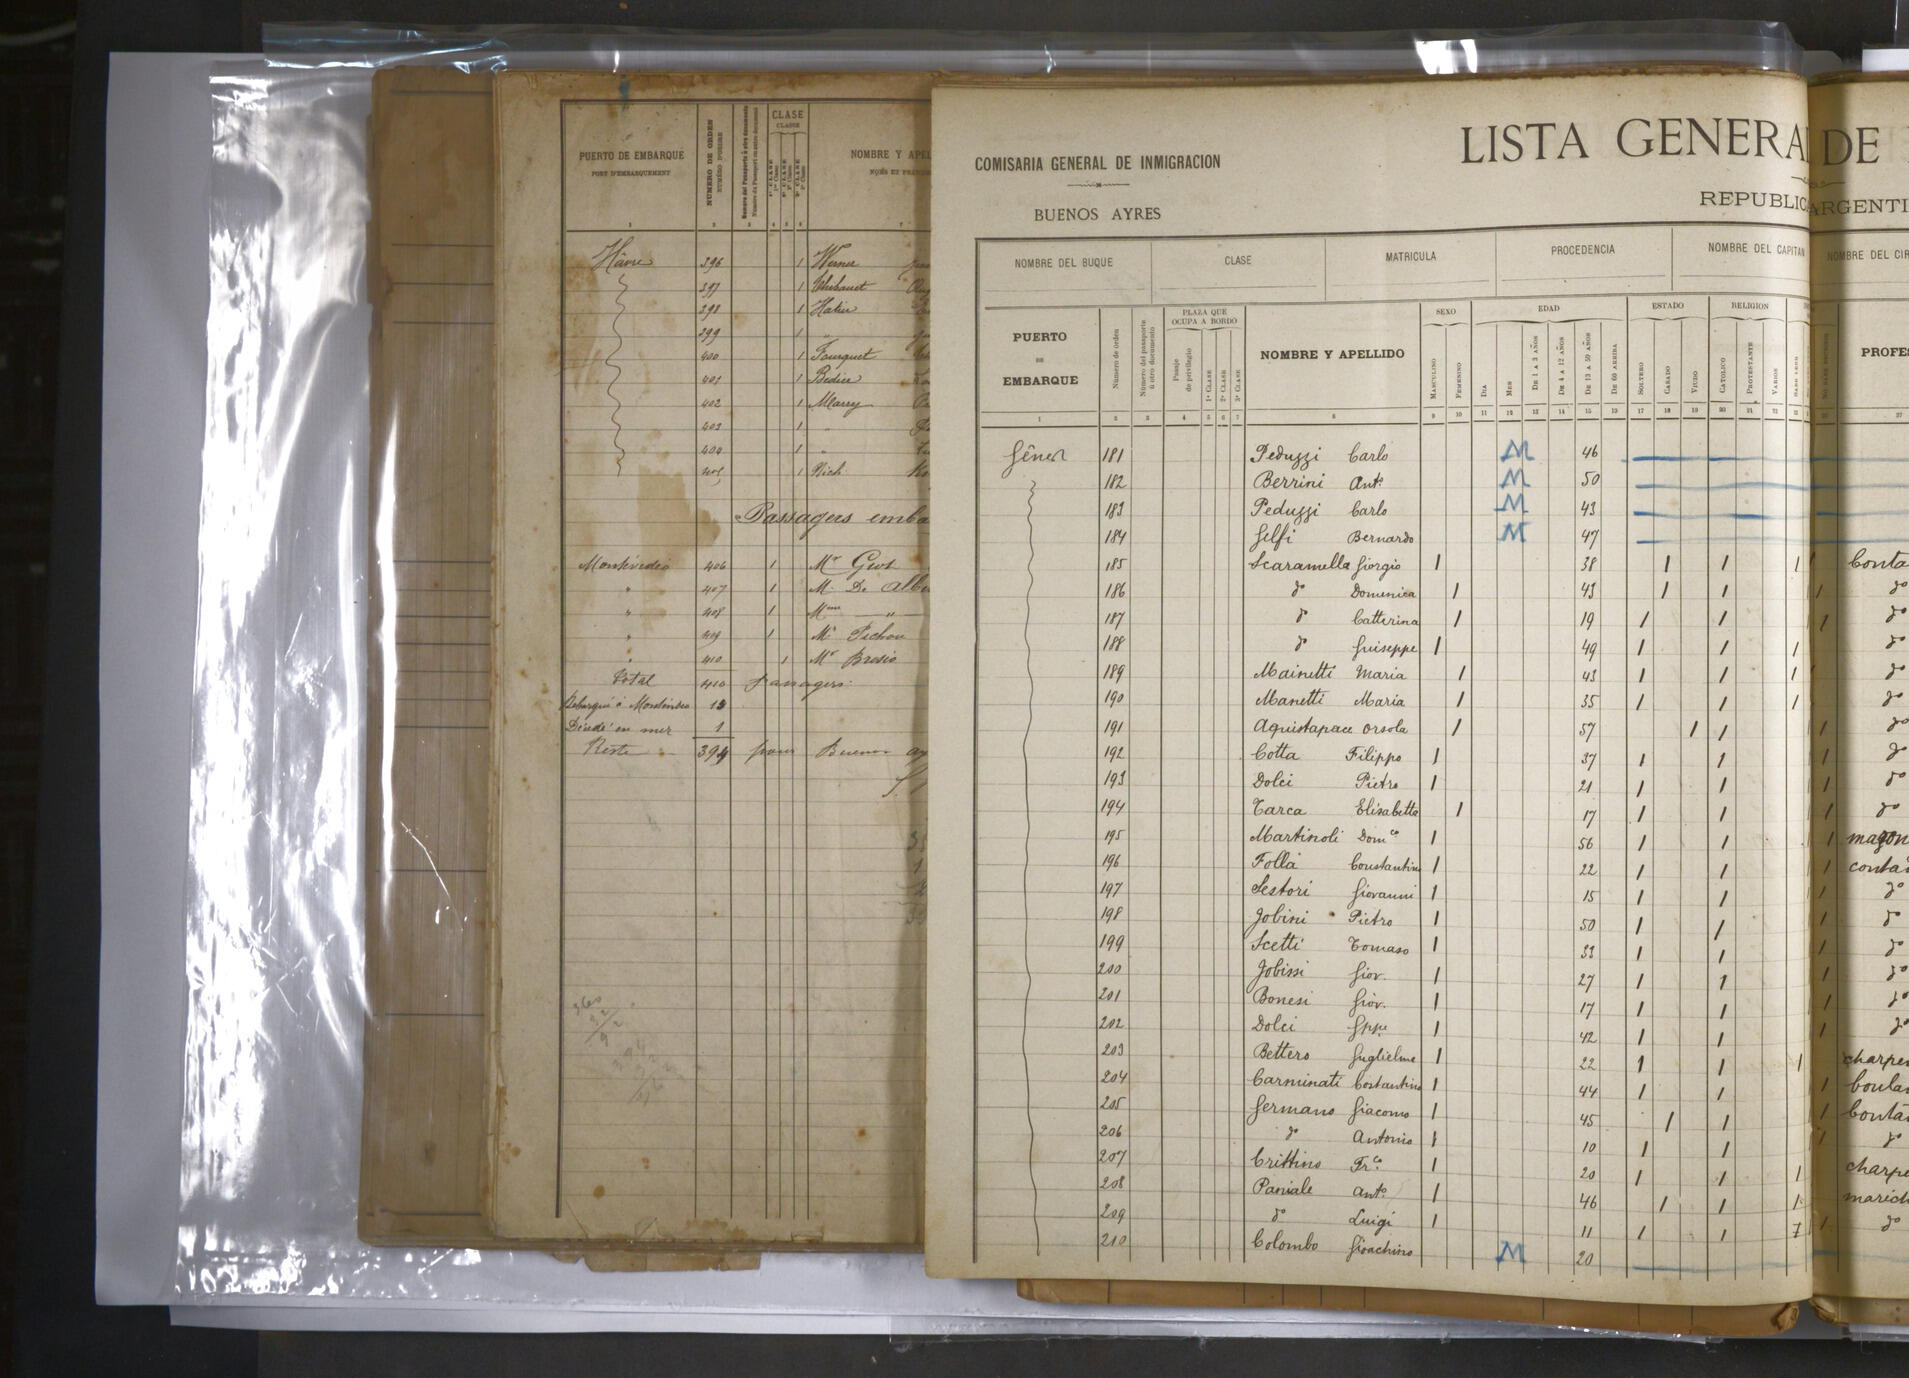 PUERTO DE EMBARQUE
PORT D'EMBARQUEMENT
NUMERO DE ORDEN
NUMÉRO D'ORDRE
CLASE
CLASSE
1ª CLASE
2ª CLASE
3ª CLASE
NOMBRE Y APEL
Hâvre 396 1 Werner
397 1 Thibaut
398 1
399 1 "
400 1 Fourquet
401 1 Bedier
402 1 Marry
403 1 "
404 1 "
405 1 Rich
Passagers emba
Montévidéo 406 1 Mr Gros
" 407 1 M. De Albu
" 408 1 Mme "
" 409 1 Mr Pichon
" 410 1 Mr Brosio
Total 410 passagers
Debarqué à Montévideo 13
Décédé en mer 1
Reste 394 pour Buenos ay
COMISARIA GENERAL DE INMIGRACION
BUENOS AYRES
LISTA GENERA DE
REPUBLIC ARGENTI
NOMBRE DEL BUQUE CLASE MATRICULA PROCEDENCIA NOMBRE DEL CAPITAN NOMBRE DEL CIR
PUERTO DE EMBARQUE
Número de orden
Número del pasaporte ú otro documento
PLAZA QUE OCUPA A BORDO
Pasaje de privilegio
1ª CLASE
2ª CLASE
3ª CLASE
NOMBRE Y APELLIDO
SEXO
MASCULINO
FEMENINO
EDAD
DIA
MES
DE 1 A 3 AÑOS
DE 4 A 12 AÑOS
DE 13 A 59 AÑOS
DE 60 ARRIBA
ESTADO
SOLTERO
CASADO
VIUDO
RELIGION
CATOLICO
PROTESTANTE
VARIOS
SABE LEER
PROFES
1 2 3 4 5 6 7 8 9 10 11 12 13 14 15 16 17 18 19 20 21 22 23 27
Gênes 181 Peduzzi Carlo M 46
182 Berrini Ant° M 50
183 Peduzzi Carlo M 43
184 Gelfi Bernardo M 47
185 Scaramella Giorgio 1 38 1 1 1 Conta
186 d° Domenica 1 43 1 1 1 d°
187 d° Catterina 1 19 1 1 1 d°
188 d° Guiseppe 1 49 1 1 1 d°
189 Mainetti Maria 1 43 1 1 1 d°
190 Manetti Maria 1 35 1 1 1 d°
191 Aquistapace Orsola 1 57 1 1 1 d°
192 Cotta Filippo 1 37 1 1 1 d°
193 Dolci Pietro 1 21 1 1 1 d°
194 Tarca Elisabetta 1 17 1 1 1 d°
195 Martinoli Domco 1 56 1 1 1 maçon
196 Folla Constantino 1 22 1 1 1 conta
197 Sestori Giovanni 1 15 1 1 1 d°
198 Jobini Pietro 1 50 1 1 1 d°
199 Scetti Tomaso 1 33 1 1 1 d°
200 Jobissi Giov. 1 27 1 1 1 d°
201 Bonesi Giov. 1 17 1 1 1 d°
202 Dolci Gppe 1 42 1 1 1 d°
203 Bettero Guglielmo 1 22 1 1 1 charpe
204 Carminati Costantino 1 44 1 1 1 boulan
205 Germano Giacomo 1 45 1 1 1 Conta
206 d° Antonio 1 10 1 1 1 d°
207 Crittino Frco 1 20 1 1 1 charpe
208 Paniale Ant° 1 46 1 1 1 maréch
209 d° Luigi 1 11 1 1 1 d°
210 Colombo Gioachino M 20